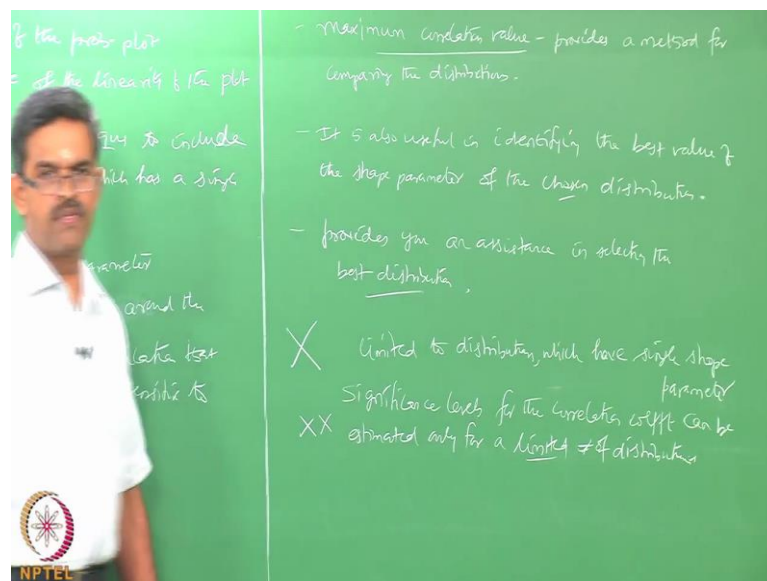 of the prob plot
of the linearity of the plot
to include
which has a single
parameter
around the
test
sensitive to
- Maximum correlation value - provides a method for
comparing the distributions.
- It is also useful in identifying the best value of
the shape parameter of the chosen distribution.
- provides you an assistance in selecting the
best distribution.
X Limited to distribution, which have single shape
parameter
XX Significance levels for the correlation coefft can be
estimated only for a limited # of distributions
NPTEL